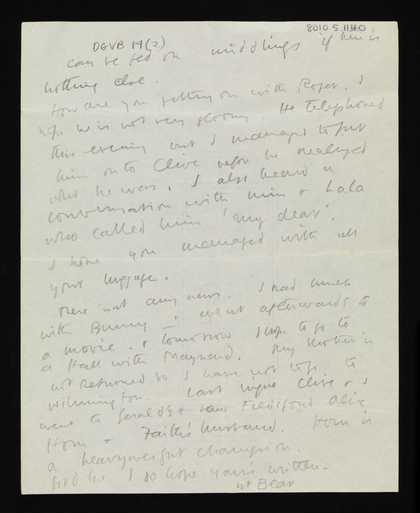 8010.5.1180
DGVB 14(2)
can be fed on middlings if there is
nothing else.
How are you getting on with Roger. I
hope he is not very gloomy He telephoned
this evening but I managed to put
him onto Clive before he realized
who he was. I also heard a
conversation with him & Lala
who called him 'my dear'.
I hope you managed with all
your luggage.
There's not any news. I had lunch
with Bunny I went afterwards to
a movie. & tomorrow I hope to go to
a Hall with Maynard. My Mother is
not returned so I have not to
Wilmington. Last night Clive & I
went to Gerald's & saw Alix
Horn & Faith's husband. Horn is
a heavyweight champion.
I do hope you're written.
yr Bear